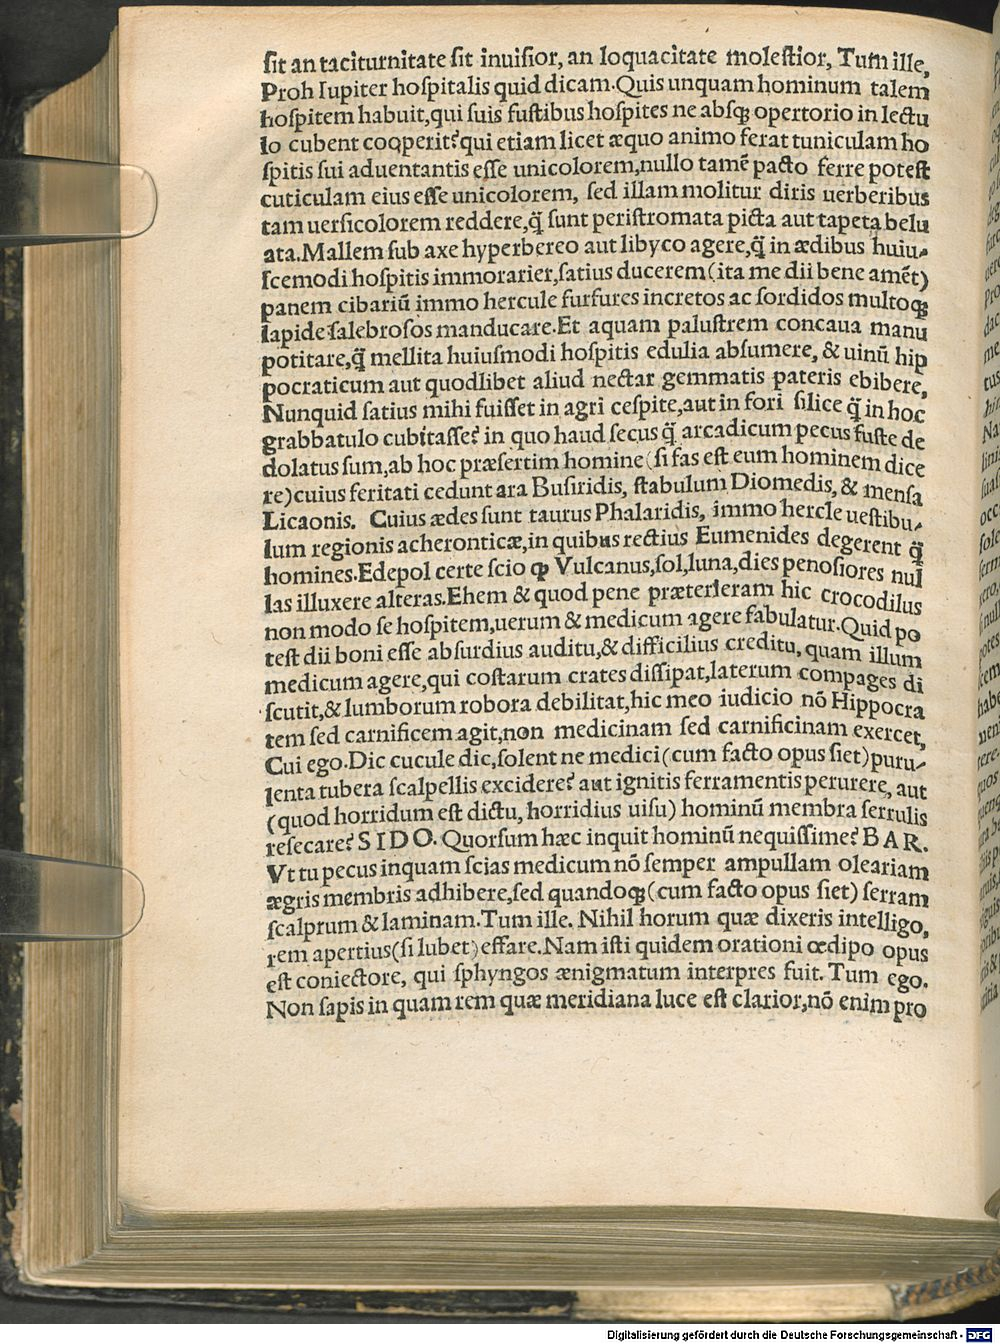 ſit an taciturnitate ſit inuiſior, an loquacitate moleſtior, Tum ille,
Proh Iupiter hoſpitalis quid dicam.Quis unquam hominum talem
hoſpitem habuit,qui ſuis fuſtibus hoſpites ne abſqꝫ opertorio in lectu
lo cubent cooperit? qui etiam licet æquo animo ferat tuniculam ho
ſpitis ſui aduentantis eſſe unicolorem,nullo tamē pacto ferre poteſt
cuticulam eius eſſe unicolorem, ſed illam molitur diris uerberibus
tam uerſicolorem reddere,q̄ ſunt periſtromata picta aut tapeta belu
ata.Mallem ſub axe hyperbereo aut libyco agere,q̄ in ædibus huiu-
ſcemodi hoſpitis immorarier,ſatius ducerem(ita me dii bene amēt)
panem cibariū immo hercule furfures incretos ac ſordidos multoqꝫ
lapide ſalebroſos manducare.Et aquam paluſtrem concaua manu
potitare,q̄ mellita huiuſmodi hoſpitis edulia abſumere, & uinū hip
pocraticum aut quodlibet aliud nectar gemmatis pateris ebibere,
Nunquid ſatius mihi fuiſſet in agri ceſpite,aut in fori ſilice q̄ in hoc
grabbatulo cubitaſſe? in quo haud ſecus q̄ arcadicum pecus fuſte de
dolatus ſum,ab hoc præſertim homine(ſi fas eſt eum hominem dice
re)cuius feritati cedunt ara Buſiridis, ſtabulum Diomedis, & menſa
Licaonis. Cuius ædes ſunt taurus Phalaridis, immo hercle ueſtibu-
lum regionis acheronticæ,in quibus rectius Eumenides degerent q̄
homines.Edepol certe ſcio ꝙ Vulcanus,ſol,luna,dies penoſiores nul
las illuxere alteras.Ehem & quod pene præterieram hic crocodilus
non modo ſe hoſpitem,uerum & medicum agere fabulatur.Quid po
teſt dii boni eſſe abſurdius auditu,& difficilius creditu, quam illum
medicum agere,qui coſtarum crates diſſipat,laterum compages di
ſcutit,& lumborum robora debilitat,hic meo iudicio nō Hippocra
tem ſed carnificem agit,non medicinam ſed carnificinam exercet,
Cui ego.Dic cucule dic,ſolent ne medici(cum facto opus ſiet)puru-
lenta tubera ſcalpellis excidere? aut ignitis ferramentis perurere, aut
(quod horridum eſt dictu, horridius uiſu) hominū membra ſerrulis
reſecare? S I D O. Quorſum hæc inquit hominū nequiſſime? B A R.
Vt tu pecus inquam ſcias medicum nō ſemper ampullam oleariam
ægris membris adhibere,ſed quandoqꝫ(cum facto opus ſiet) ſerram
ſcalprum & laminam.Tum ille. Nihil horum quæ dixeris intelligo,
rem apertius(ſi lubet)effare.Nam iſti quidem orationi œdipo opus
eſt coniectore, qui ſphyngos ænigmatum interpres fuit. Tum ego.
Non ſapis in quam rem quæ meridiana luce eſt clarior,nō enim pro
Digitalisierung gefördert durch die Deutsche Forschungsgemeinschaft - DFG